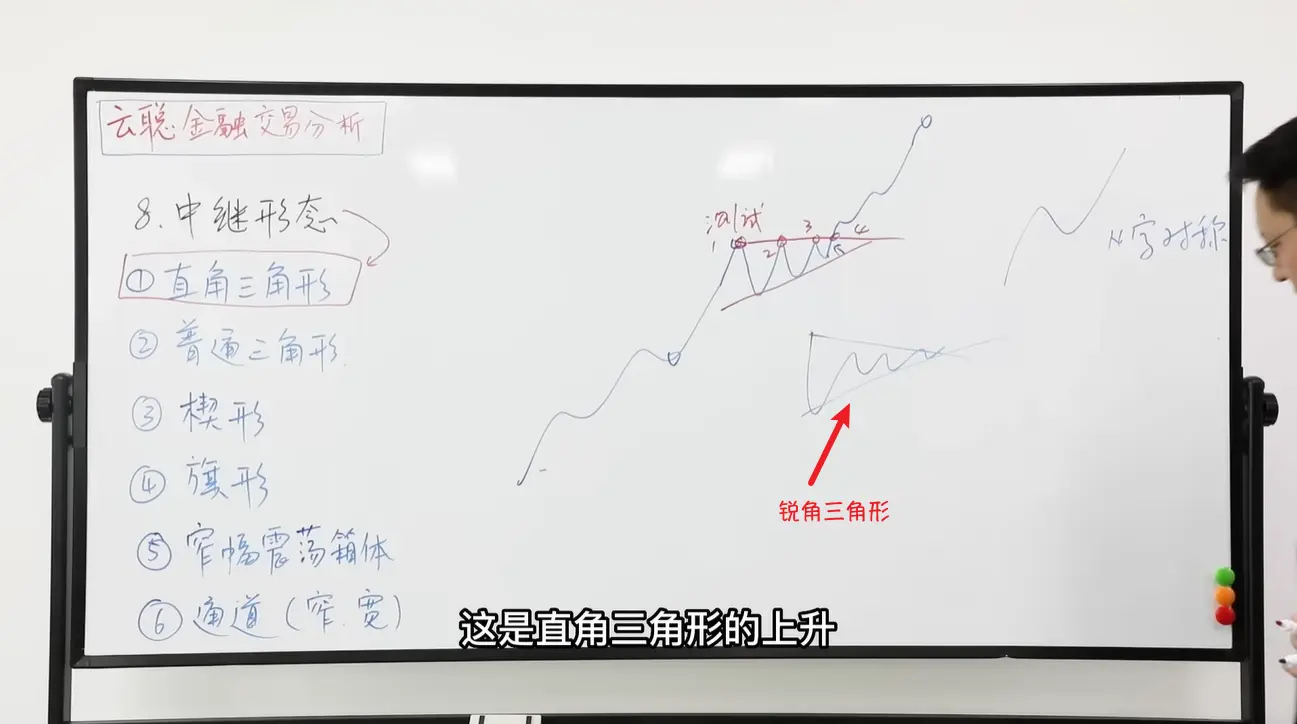 云聪金融交易分析
8.中继形态
①直角三角形
②普通三角形
③楔形
④旗形
⑤窄幅震荡箱体
⑥通道(窄.宽)
测试
1 2 3 4 5
N字对称
锐角三角形
这是直角三角形的上升